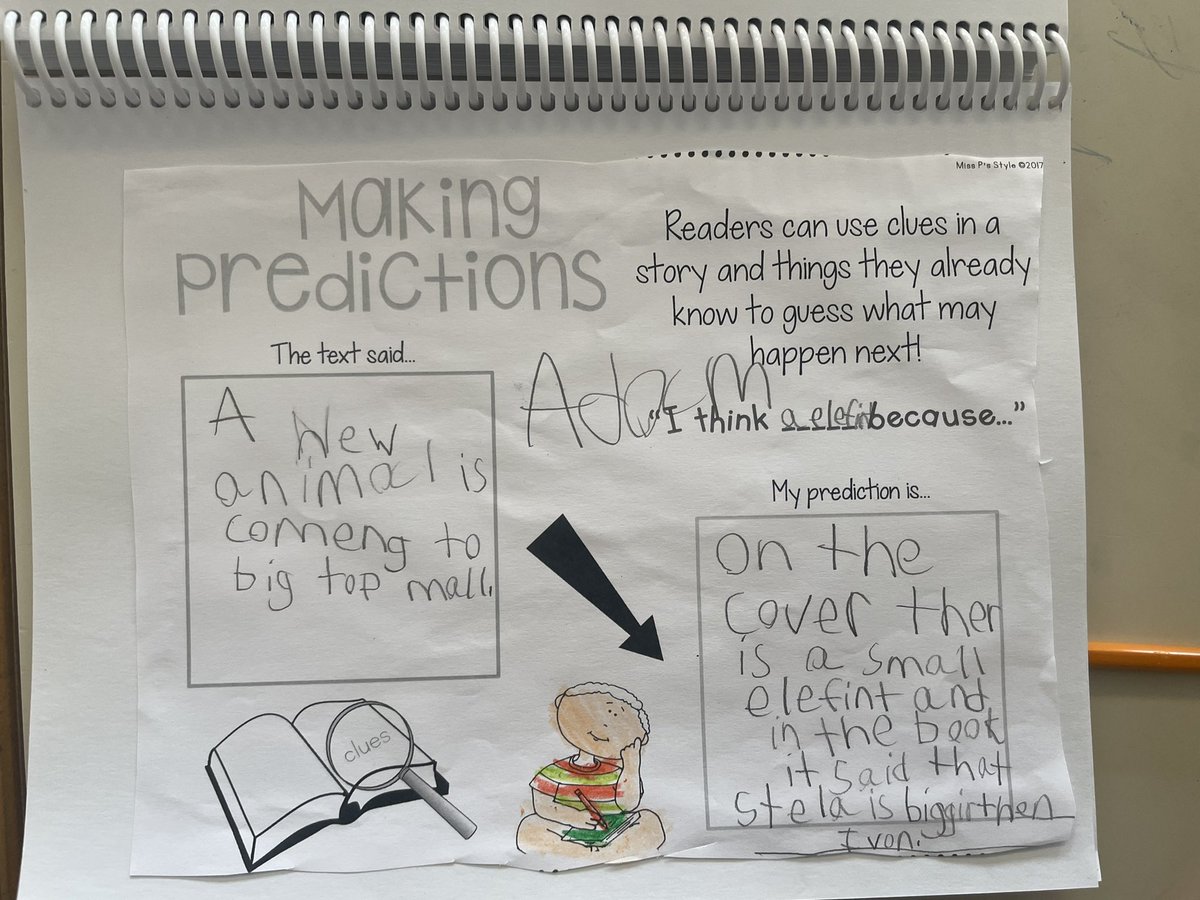 Miss P's Style ©2017
Making
Predictions
Readers can use clues in a
story and things they already
know to guess what may
happen next!
The text said...
A New
animal is
comeng to
big top mall.
Adam
"I think a elefint because..."
My prediction is...
on the
cover ther
is a small
elefint and
in the book
it said that
Stela is biggir then
Ivon.
clues